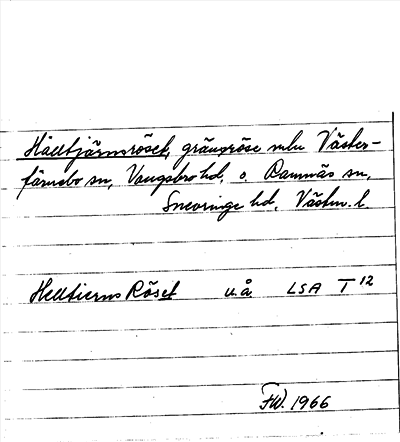 Hälltjärnsröset, gränsröse mln Väster-
färnebo sn, Vangsbro hd, o. Ramnäs sn,
Snevringe hd, Västm. l.
Helltierns Röset u.å. LSA T 12
FW. 1966